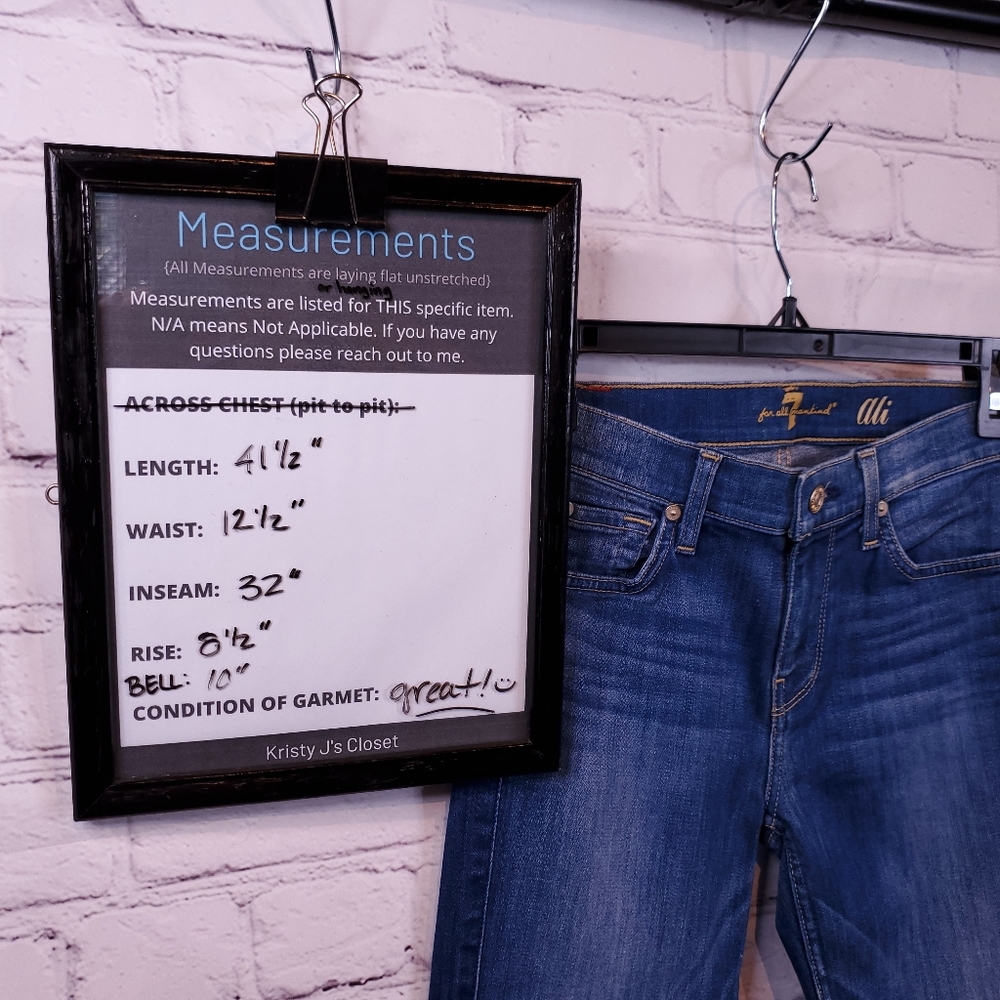 Measurements
{All Measurements are laying flat unstretched}
or hanging
Measurements are listed for THIS specific item.
N/A means Not Applicable. If you have any
questions please reach out to me.
ACROSS CHEST (pit to pit):
LENGTH: 41 1/2"
WAIST: 12 1/2"
INSEAM: 32"
RISE: 8 1/2"
BELL: 10"
CONDITION OF GARMET: great! :)
Kristy J's Closet
7
for all mankind®
ali